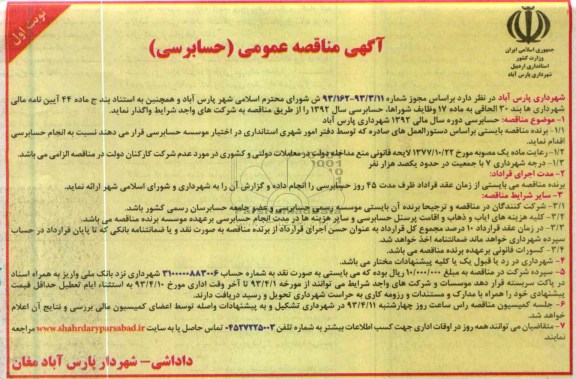 نوبت اول
جمهوری اسلامی ایران
وزارت کشور
استانداری اردبیل
شهرداری پارس آباد
آگهی مناقصه عمومی (حسابرسی)
شهرداری پارس آباد در نظر دارد براساس مجوز شماره ۹۳/۱۶۲-۹۳/۳/۱۱ ش شورای محترم اسلامی شهر پارس آباد و همچنین به استناد بند ج ماده ۴۴ آیین نامه مالی
شهرداری ها بند ۳۰ الحاقی به ماده ۱۷ وظایف شوراها، حسابرسی سال ۱۳۹۲ را از طریق مناقصه به شرکت های واجد شرایط واگذار نماید.
۱- موضوع مناقصه: حسابرسی دوره سال مالی ۱۳۹۲ شهرداری پارس آباد
۱/۱- برنده مناقصه بایستی براساس دستورالعمل های صادره که توسط دفتر امور شهری استانداری در اختیار موسسه حسابرسی قرار می دهند نسبت به انجام حسابرسی
اقدام نماید.
۱/۲- رعایت ماده یک مصوبه مورخ ۱۳۷۷/۱۰/۲۲ لایحه قانونی منع مداخله دولت در معاملات دولتی و کشوری در مورد عدم شرکت کارکنان دولت در مناقصه الزامی می باشد.
۱/۳- درجه شهرداری ۷ با جمعیت در حدود یکصد هزار نفر
۲- مدت اجرای قراداد:
برنده مناقصه می بایستی از زمان عقد قراداد ظرف مدت ۴۵ روز حسابرسی را انجام داده و گزارش آن را به شهرداری و شورای اسلامی شهر ارائه نماید.
۳- سایر شرایط مناقصه:
۳/۱- شرکت کنندگان در مناقصه و ترجیحا برنده آن بایستی موسسه رسمی حسابرسی و عضو جامعه حسابرسان رسمی کشور باشد.
۳/۲- کلیه هزینه های ایاب و ذهاب و اقامت پرسنل حسابرسی و سایر هزینه ها در مدت انجام حسابرسی برعهده موسسه برنده مناقصه می باشد.
۳/۳- در زمان عقد قرارداد ۱۰ درصد مجموع کل قرارداد به عنوان حسن اجرای قرارداد از برنده مناقصه به صورت نقد و یا ضمانتنامه بانکی که تا پایان قرارداد در حساب
سپرده شهرداری خواهد ماند ضمانتنامه اخذ خواهد شد.
۳/۴- کسورات قانونی برعهده برنده مناقصه می باشد.
۴- شهرداری در رد یا قبول یک یا کلیه پیشنهادات مختار می باشد.
۵- سپرده شرکت در مناقصه به مبلغ ۱۰/۰۰۰/۰۰۰ ریال بوده که می بایستی به صورت نقد به شماره حساب ۳۱۰۰۰۰۰۸۸۳۰۰۶ شهرداری نزد بانک ملی واریز به همراه اسناد
در پاکت سربسته قرار دهد موسسات و شرکت های واجد شرایط می توانند از مورخه ۹۳/۴/۱ تا آخر وقت اداری مورخ ۹۳/۴/۱۰ به استثناء ایام تعطیل حداقل قیمت
پیشنهادی خود را همراه با مدارک و مستندات و رزومه کاری به حراست شهرداری تحویل و رسید دریافت دارند.
۶- جلسه کمیسیون مناقصه راس ساعت روز چهارشنبه ۹۳/۴/۱۱ در شهرداری تشکیل و به پیشنهادات واصله توسط اعضای کمیسیون مالی بررسی و نتایج آن اعلام
خواهد شد.
۷- متقاضیان می توانند همه روز در اوقات اداری جهت کسب اطلاعات بیشتر به شماره تلفن ۰۴۵۲۷۲۲۵۰۰۳ تماس حاصل یا به سایت www.shahrdaryparsabad.ir مراجعه
نمایند.
داداشی- شهردار پارس آباد مغان